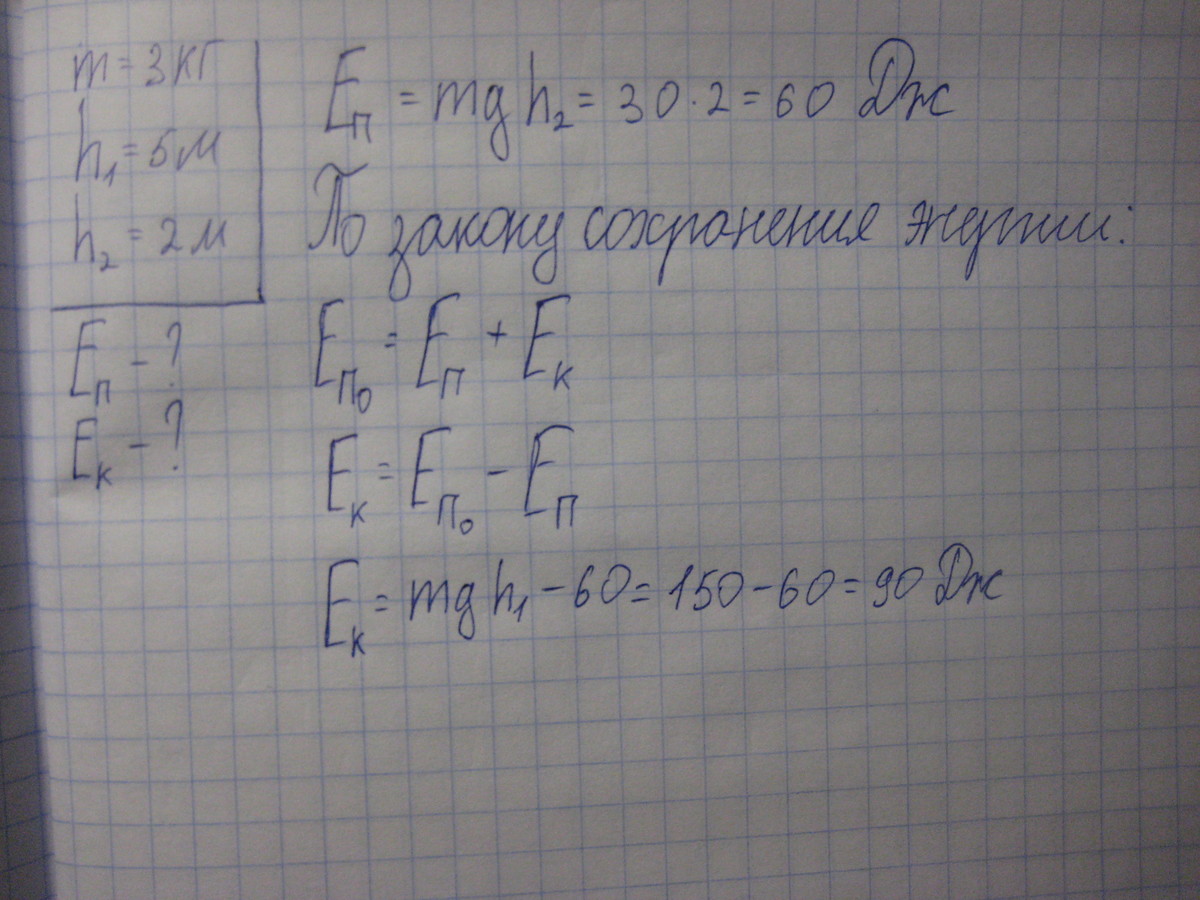 m = 3 кг
h₁ = 5 м
h₂ = 2 м
Eп - ?
Eк - ?
Eп = mgh₂ = 30 · 2 = 60 Дж
По закону сохранения энергии:
Eп₀ = Eп + Eк
Eк = Eп₀ - Eп
Eк = mgh₁ - 60 = 150 - 60 = 90 Дж